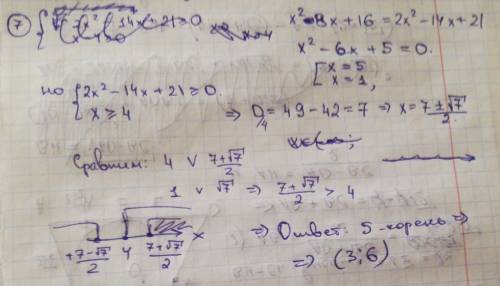 7
x² - 8x + 16 = 2x² - 14x + 21
x² - 6x + 5 = 0.
[ x = 5
x = 1,
но { 2x² - 14x + 21 ≥ 0.
x ≥ 4
⇒ D/4 = 49 - 42 = 7 ⇒ x = (7 ± √7)/2
Сравним: 4 ∨ (7+√7)/2
1 ∨ √7 ⇒ (7+√7)/2 > 4
+(7-√7)/2 4 (7+√7)/2 x
⇒ Ответ: 5 - корень ⇒
⇒ (3; 6)